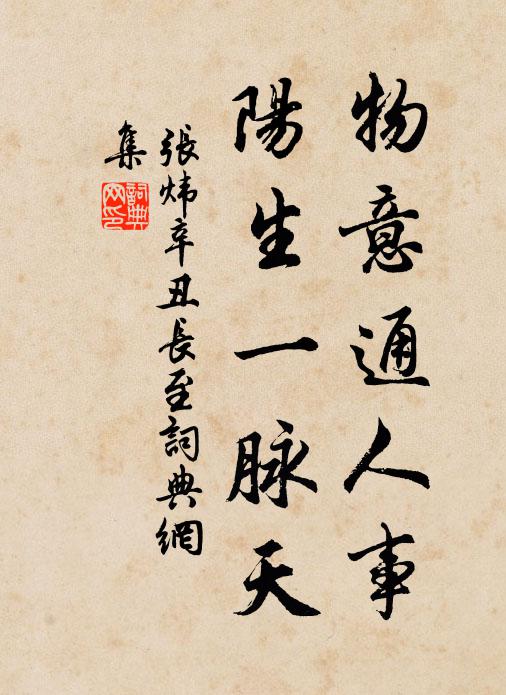 物意通人事
陽生一脉天
張煒辛丑長至詞典網
集
詞典
网印